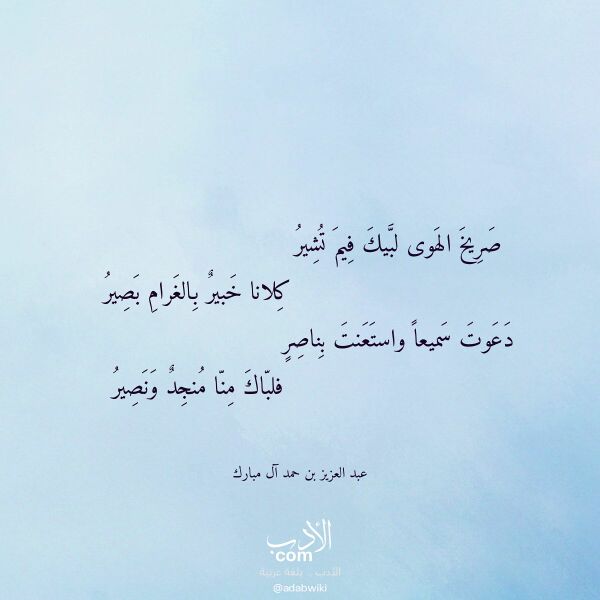 صَرِيخَ الهَوى لبَّيكَ فِيمَ تُشِيرُ
كِلانا خَبيرٌ بِالغَرامِ بَصِيرُ
دَعَوتَ سَميعاً واستَعَنتَ بِناصِرٍ
فلبّاكَ مِنّا مُنجِدٌ وَنَصِيرُ
عبد العزيز بن حمد آل مبارك
الأدب
com
الأدب .. بلغة عربية
@adabwiki